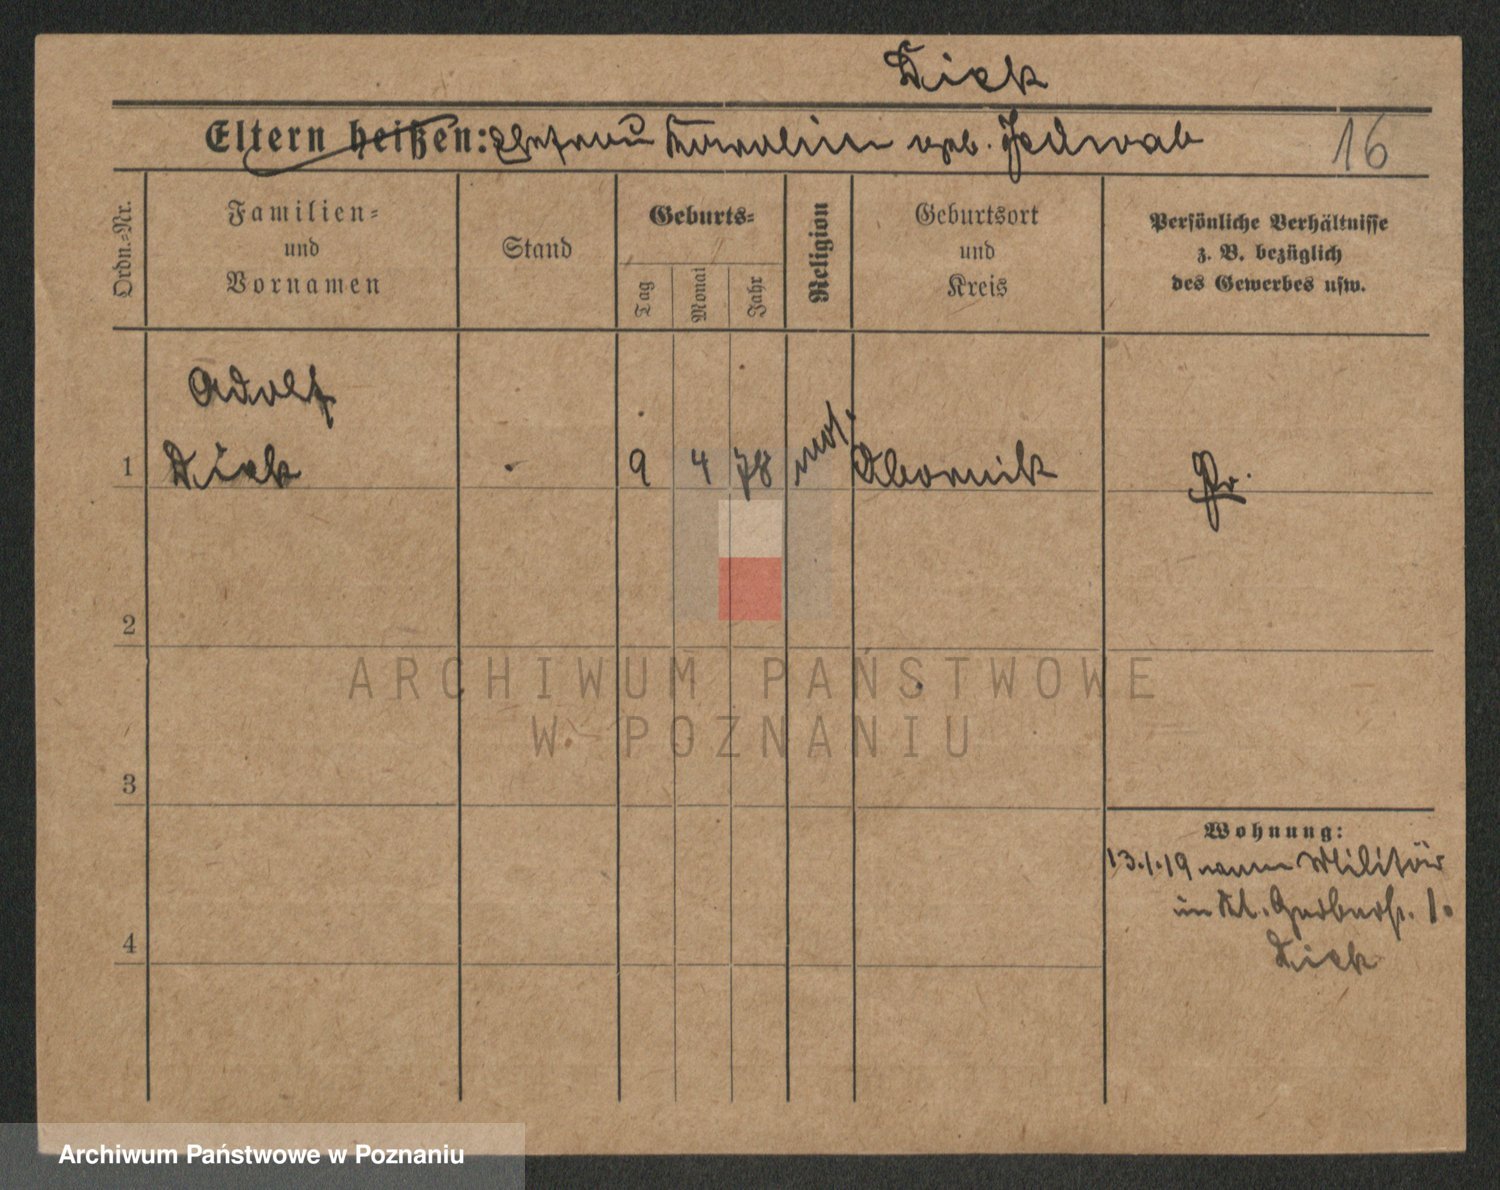 Dick
Eltern heißen: Ehefrau Karoline geb. Jedwab
16
Ordn.=Nr.
Familien=
und
Vornamen
Stand
Geburts=
Tag
Monat
Jahr
Religion
Geburtsort
und
Kreis
Persönliche Verhältnisse
z. B. bezüglich
des Gewerbes usw.
Adolf
1 Dick 9 4 78 mos. Obornik Pr.
2
ARCHIWUM PAŃSTWOWE
W POZNANIU
3
Wohnung:
13.1.19 vom Militär
in Kl. Gerberstr. 1.
4
Dick
Archiwum Państwowe w Poznaniu